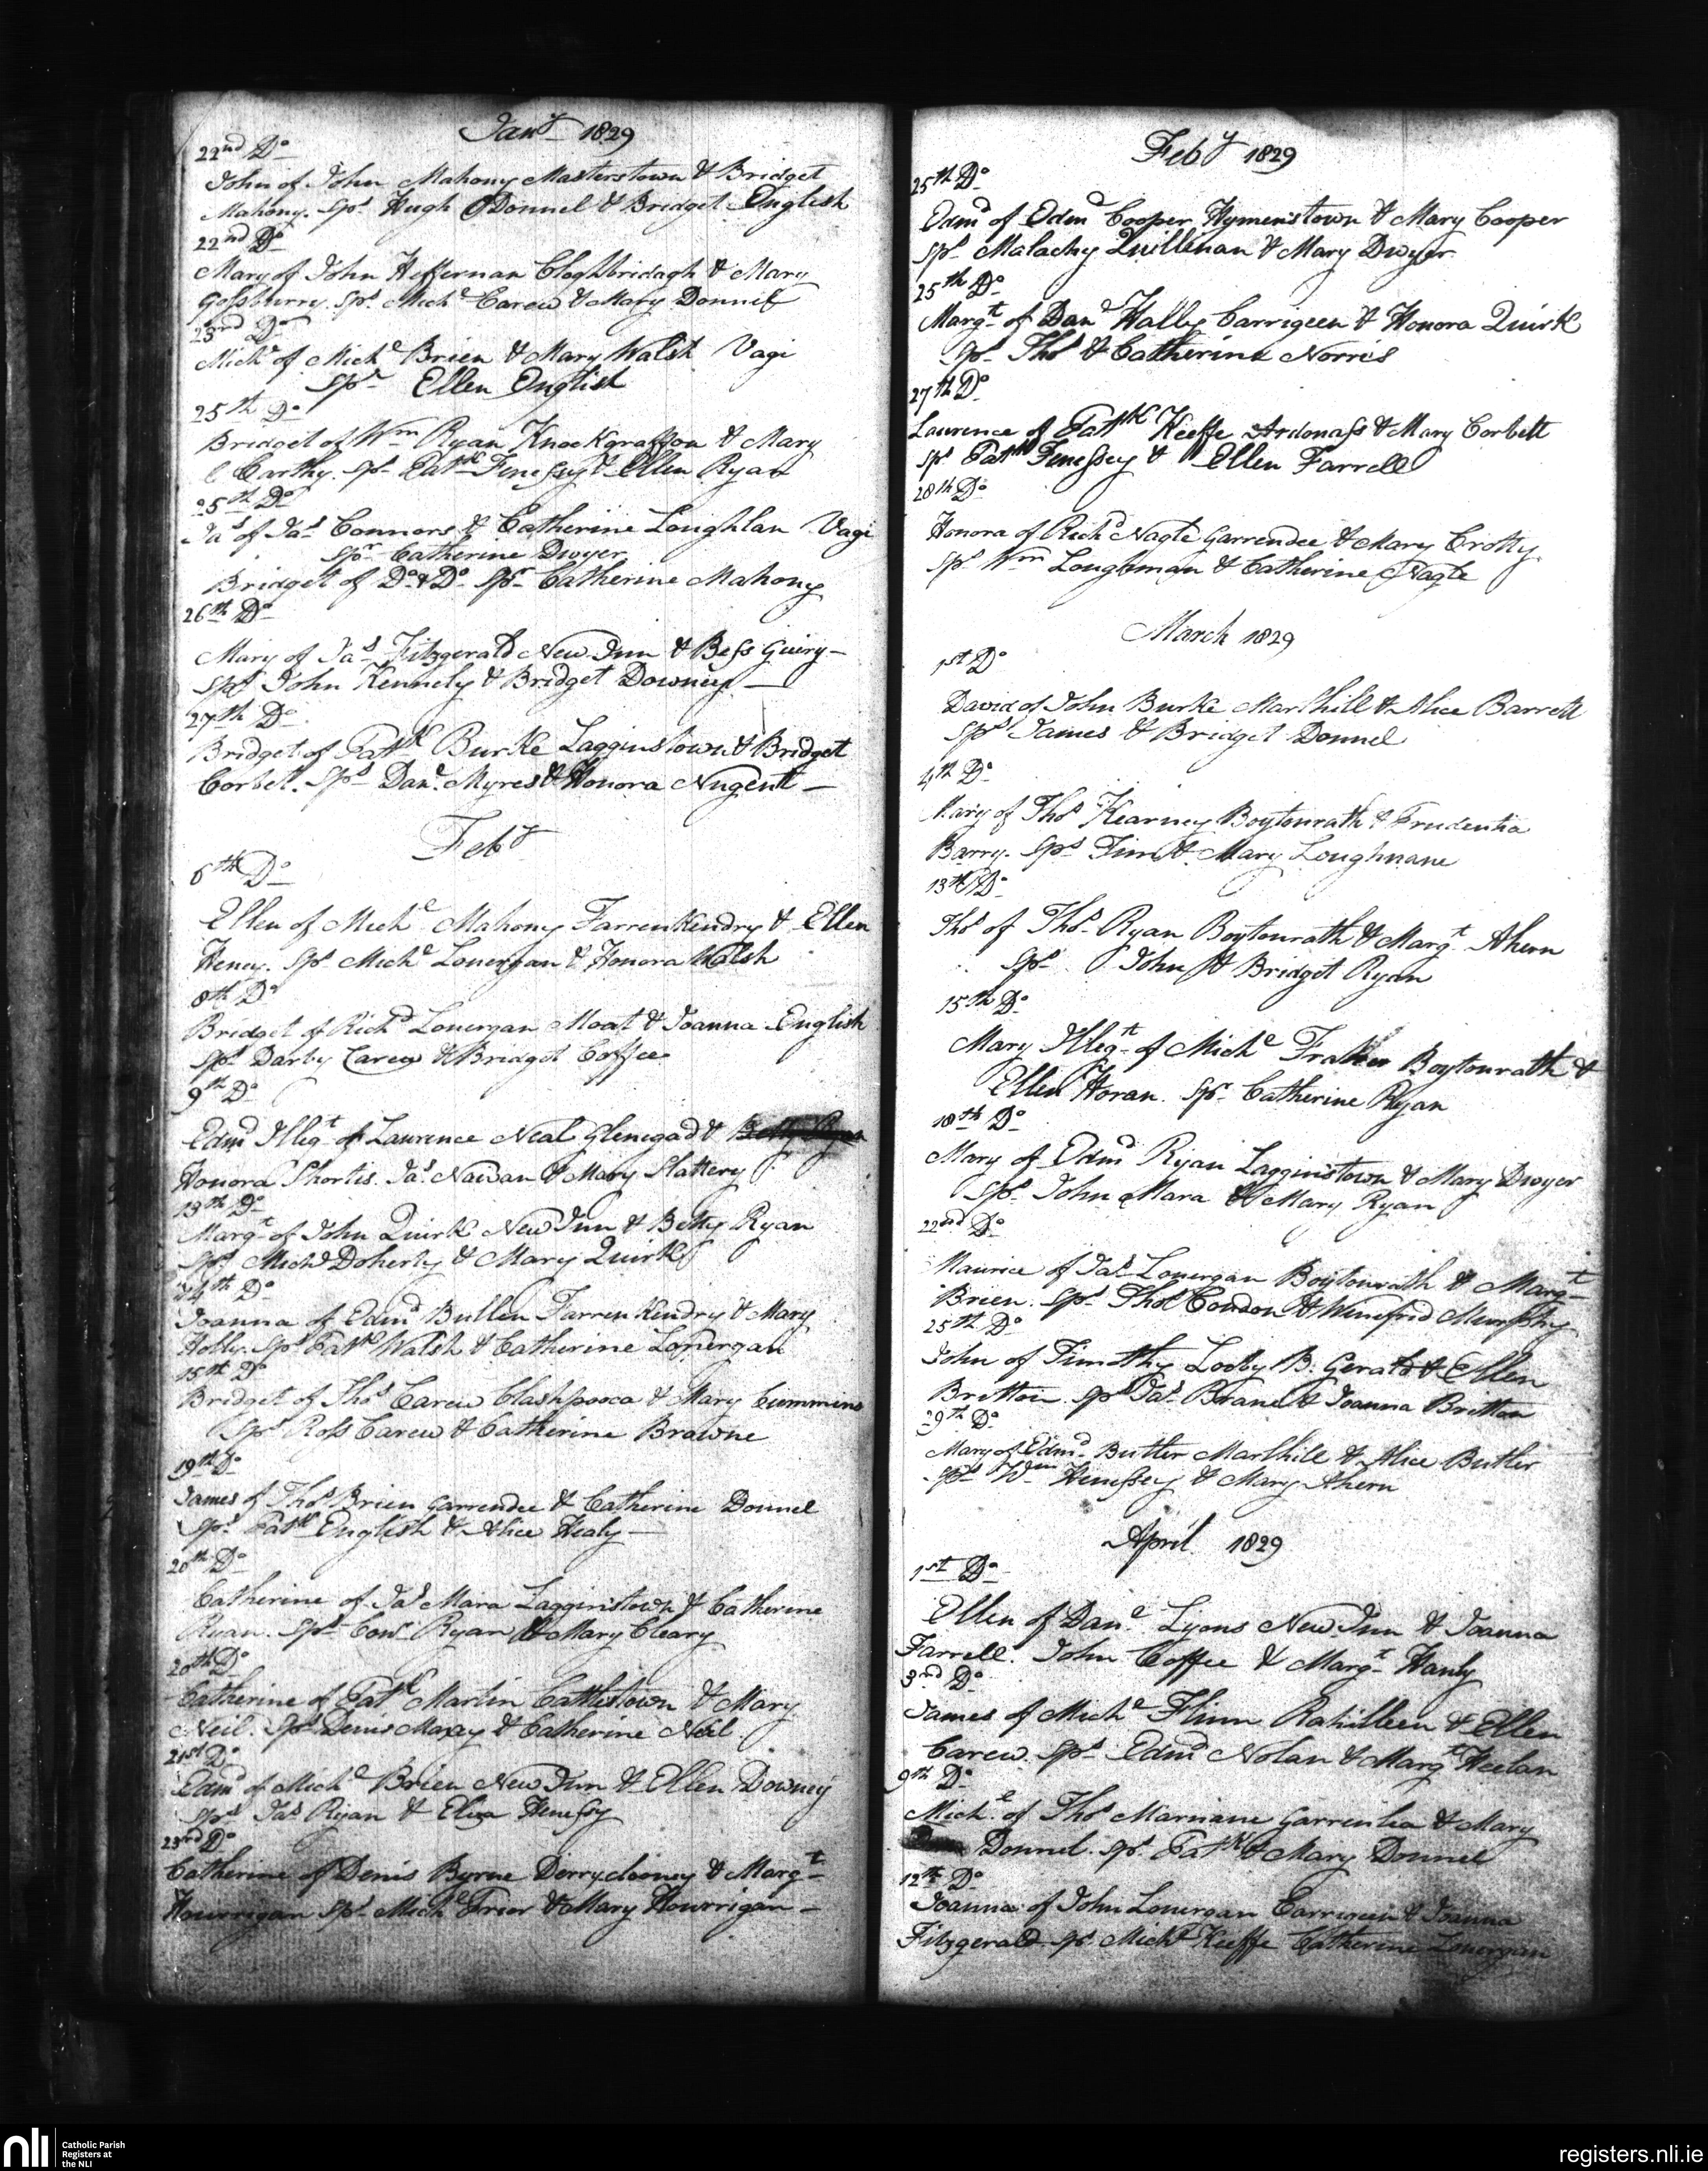 Jany 1829
22nd Do
John of John Mahony Masterstown & Bridget
Mahony. Sps Hugh ODonnel & Bridget English
22nd Do
Mary of John Heffernan Cloghbridagh & Mary
Gossberry. Sps Miche Carew & Mary Donnel
23rd Do
Miche of Miche Brien & Mary Walsh Vagi
Spr Ellen English
25th Do
Bridget of Wm Ryan Knockgraffon & Mary
Carthy. Sps Patk Fenessy & Ellen Ryan
25th Do
Jas of Jas Connors & Catherine Loughlan Vagi
Spr Catherine Dwyer
Bridget of Do & Do Spr Catherine Mahony
26th Do
Mary of Jas Fitzgerald New Inn & Bess Guiry
Sps John Kennely & Bridget Downey
27th Do
Bridget of Patk Burke Lagginstown & Bridget
Corbet. Sps Danl Myres & Honora Nugent
Feby
6th Do
Ellen of Miche Mahony Farrenkendry & Ellen
Heney. Sps Miche Lonergan & Honora Walsh
8th Do
Bridget of Richd Lonergan Moat & Joanna English
Sps Darby Carew & Bridget Coffee
9th Do
Edmd Illegt of Laurence Neal Glenegad &
Honora Shortis. Jas Nawan & Mary Slattery
13th Do
Margt of John Quirk New Inn & Betty Ryan
Sps Miche Doherty & Mary Quirk
14th Do
Joanna of Edmd Bullen Farrenkendry & Mary
Holly. Sps Patk Walsh & Catherine Lonergan
15th Do
Bridget of Thos Carew Clashpooca & Mary Cummins
Sps Ross Carew & Catherine Browne
19th Do
James of Thos Brien Garrendee & Catherine Donnel
Sps Patk English & Alice Healy
20th Do
Catherine of Jas Mara Lagginstown & Catherine
Ryan. Sps Cons Ryan & Mary Cleary
20th Do
Catherine of Patk Martin Cattlestown & Mary
Neil. Sps Denis Maxey & Catherine Neil
21st Do
Edmd of Miche Brien New Inn & Ellen Downey
Sps Jas Ryan & Eliza Henessy
23rd Do
Catherine of Denis Byrne Derryclooney & Margt
Hourrigan Sps Miche Frier & Mary Hourrigan
Feby 1829
25th Do
Edmd of Edmd Cooper Hymenstown & Mary Cooper
Sps Malachy Quillinan & Mary Dwyer
25th Do
Margt of Danl Hally Carrigeen & Honora Quirk
Sps Thos & Catherine Norris
27th Do
Laurence of Patk Keeffe Ardonass & Mary Corbett
Sps Patk Fenessey & Ellen Farrell
28th Do
Honora of Richd Nagle Garrendee & Mary Crotty
Sps Wm Loughman & Catherine Nagle
March 1829
1st Do
David of John Burke Marlhill & Alice Barrett
Sps James & Bridget Donnel
4th Do
Mary of Thos Kearney Boytonrath & Prudentia
Barry. Sps Tim & Mary Loughnane
13th Do
Thos of Thos Ryan Boytonrath & Margt Ahern
Sps John & Bridget Ryan
15th Do
Mary Illegt of Miche Boytonrath &
Ellen Horan. Spr Catherine Ryan
18th Do
Mary of Edmd Ryan Lagginstown & Mary Dwyer
Sps John Mara & Mary Ryan
22nd Do
Maurice of Jas Lonergan Boytonrath & Margt
Brien. Sps Thos Condon & Winefrid Murphy
25th Do
John of Timothy Looby B: Gerald & Ellen
Britton. Sps Jas Brane & Joanna Britton
29th Do
Mary of Edmd Butler Marlhill & Alice Butler
Sps Wm Henessey & Mary Ahern
April 1829
1st Do
Ellen of Dane Lyons New Inn & Joanna
Farrell. John Coffee & Margt Hanly
3rd Do
James of Miche Flinn Rahilleen & Ellen
Carew. Sps Edmd Nolan & Margt Heelan
9th Do
Miche of Thos Marnane Garrenlea & Mary
Donnel. Sps Patk & Mary Donnel
12th Do
Joanna of John Lonergan Carrigeen & Joanna
Fitzgerald Sps Miche Keeffe Catherine Lonergan
nli
Catholic Parish
Registers at
the NLI
registers.nli.ie